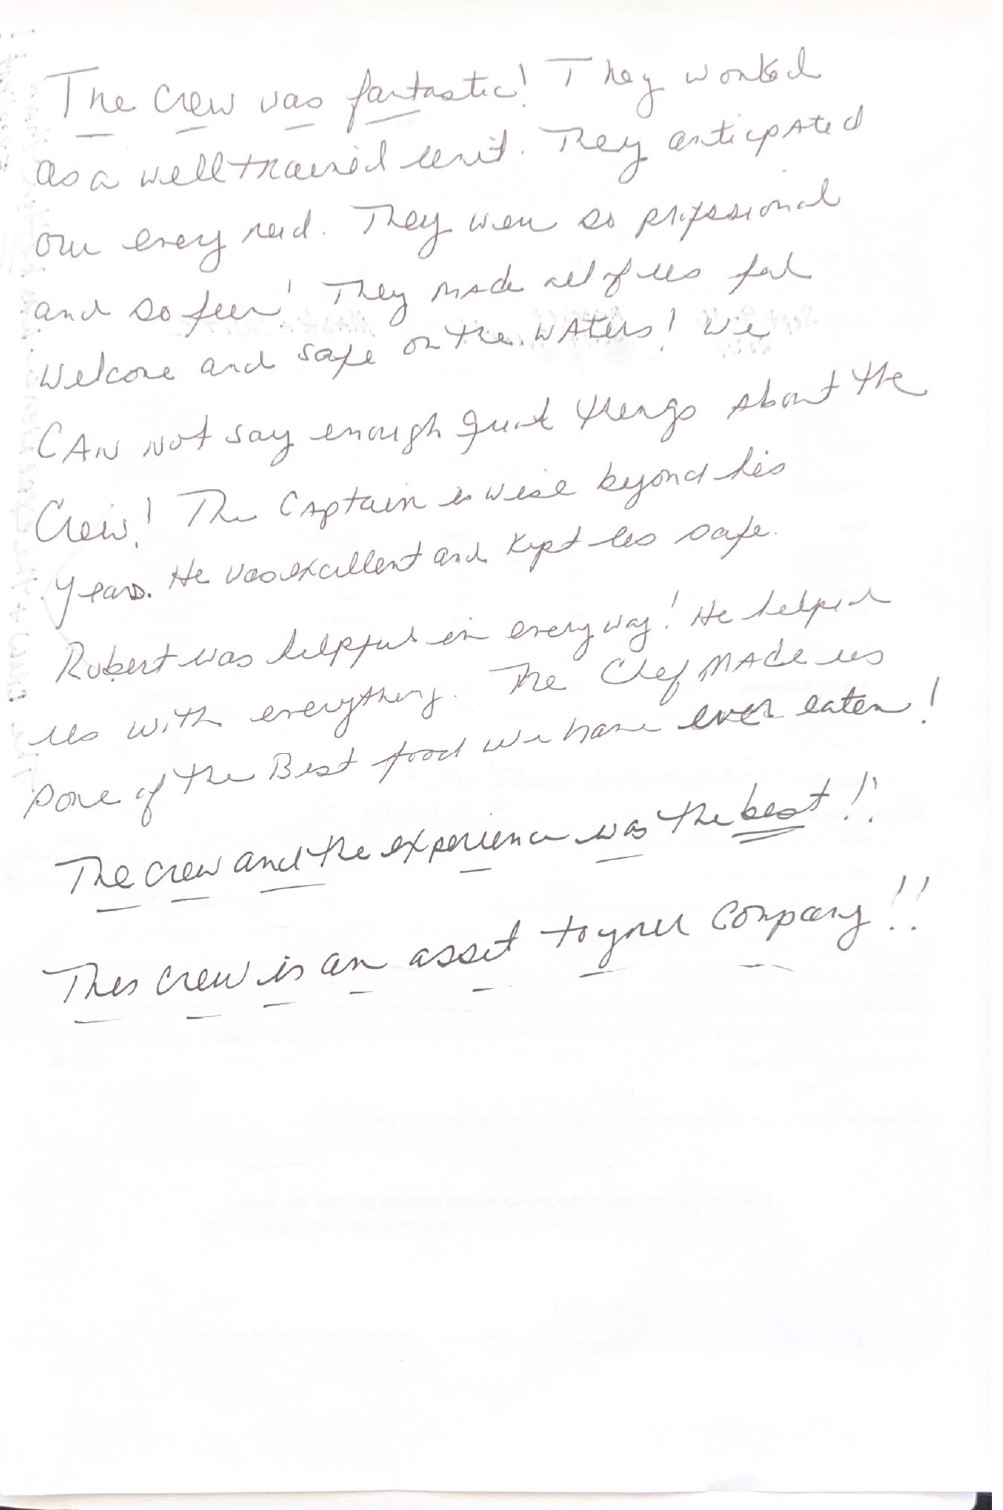 The crew was fantastic! They worked
as a well trained unit. They anticipated
our every need. They were so professional
and so fun! They made all of us feel
welcome and safe on the waters! We
CAN Not say enough great things about the
Crew! The Captain is wise beyond his
years. He was excellent and kept us safe.
Robert was helpful in every way! He helped
us with everything. The Chef MADE us
some of the Best food we have ever eaten!
The crew and the experience was the best!!
This crew is an asset to your company!!